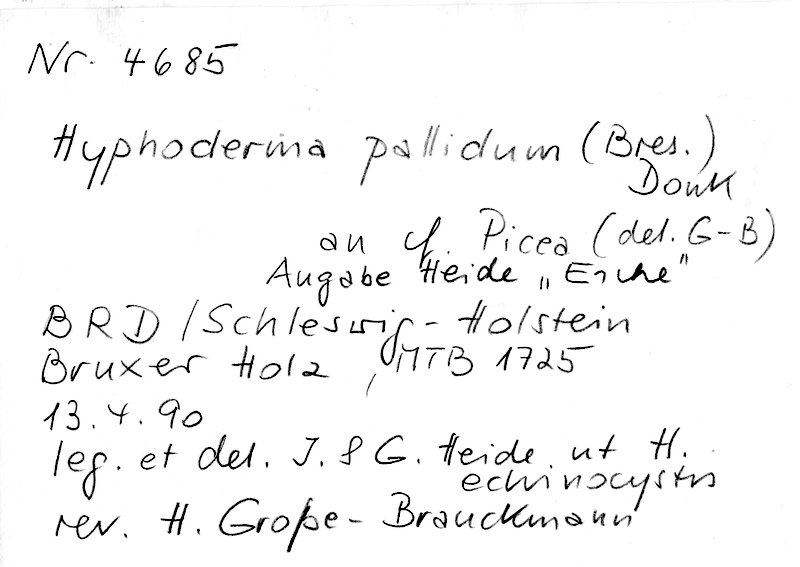 Nr. 4685
Hyphoderma pallidum (Bres.)
Donk
an cf. Picea (det. G-B)
Angabe Heide „Eiche"
BRD / Schleswig-Holstein
Bruxer Holz, MTB 1725
13.4.90
leg. et det. J. & G. Heide ut H.
echinocystis
rev. H. Große-Brauckmann